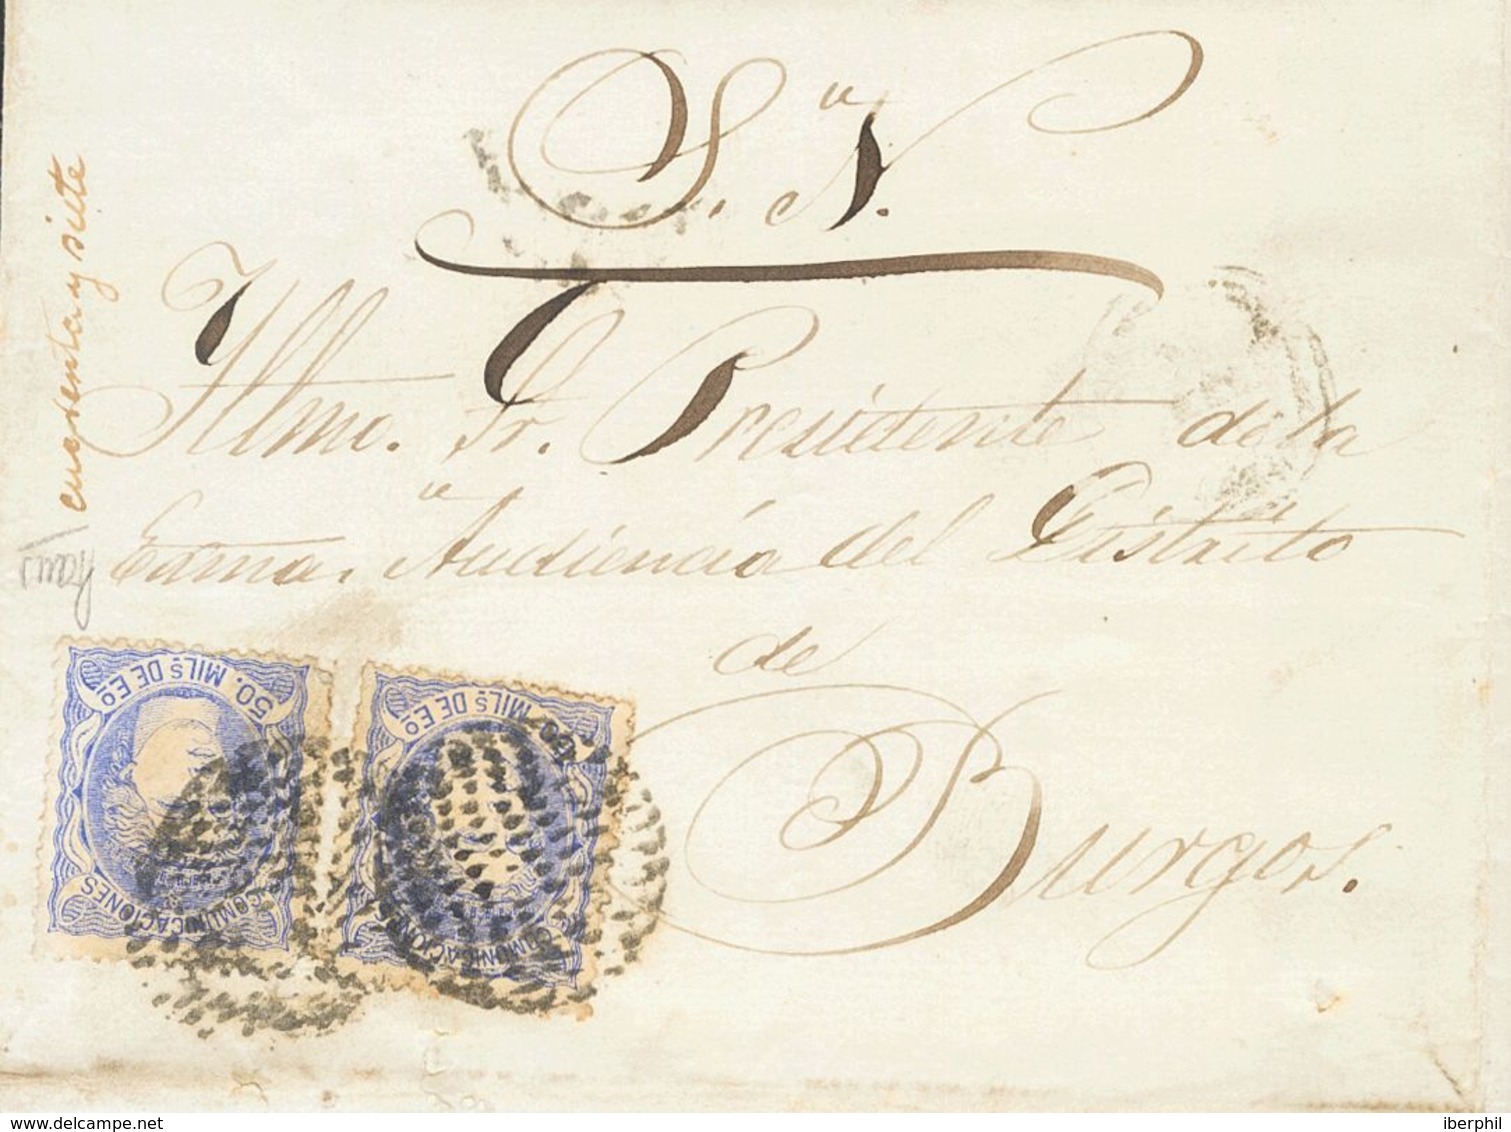 S. N.
Illmo. Sr. Presidente de la
Exma. Audiencia del Distrito
de
Burgos.
cuarenta y siete
50. MILS DE EO
COMUNICACIONES
50. MILS DE EO
COMUNICACIONES
www.delcampe.net
iberphil